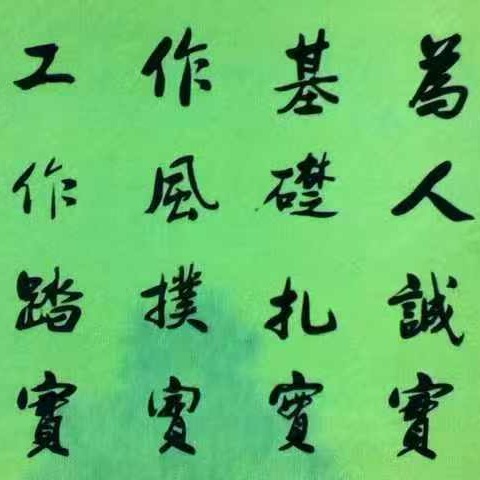 為人誠實
基礎扎實
作風撲實
工作踏實